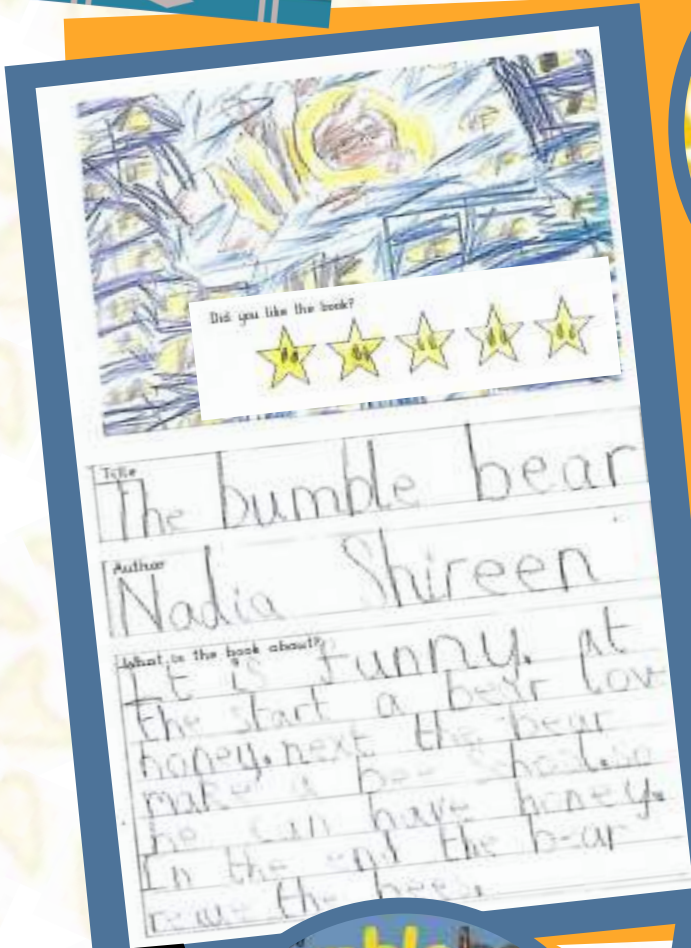 Did you like the book?
Title
The bumble bear
Author
Nadia Shireen
What is the book about?
It is funny. at
the start a bear love
honey. next the bear
make a bee
he can have honey.
In the end the bear
the bees.